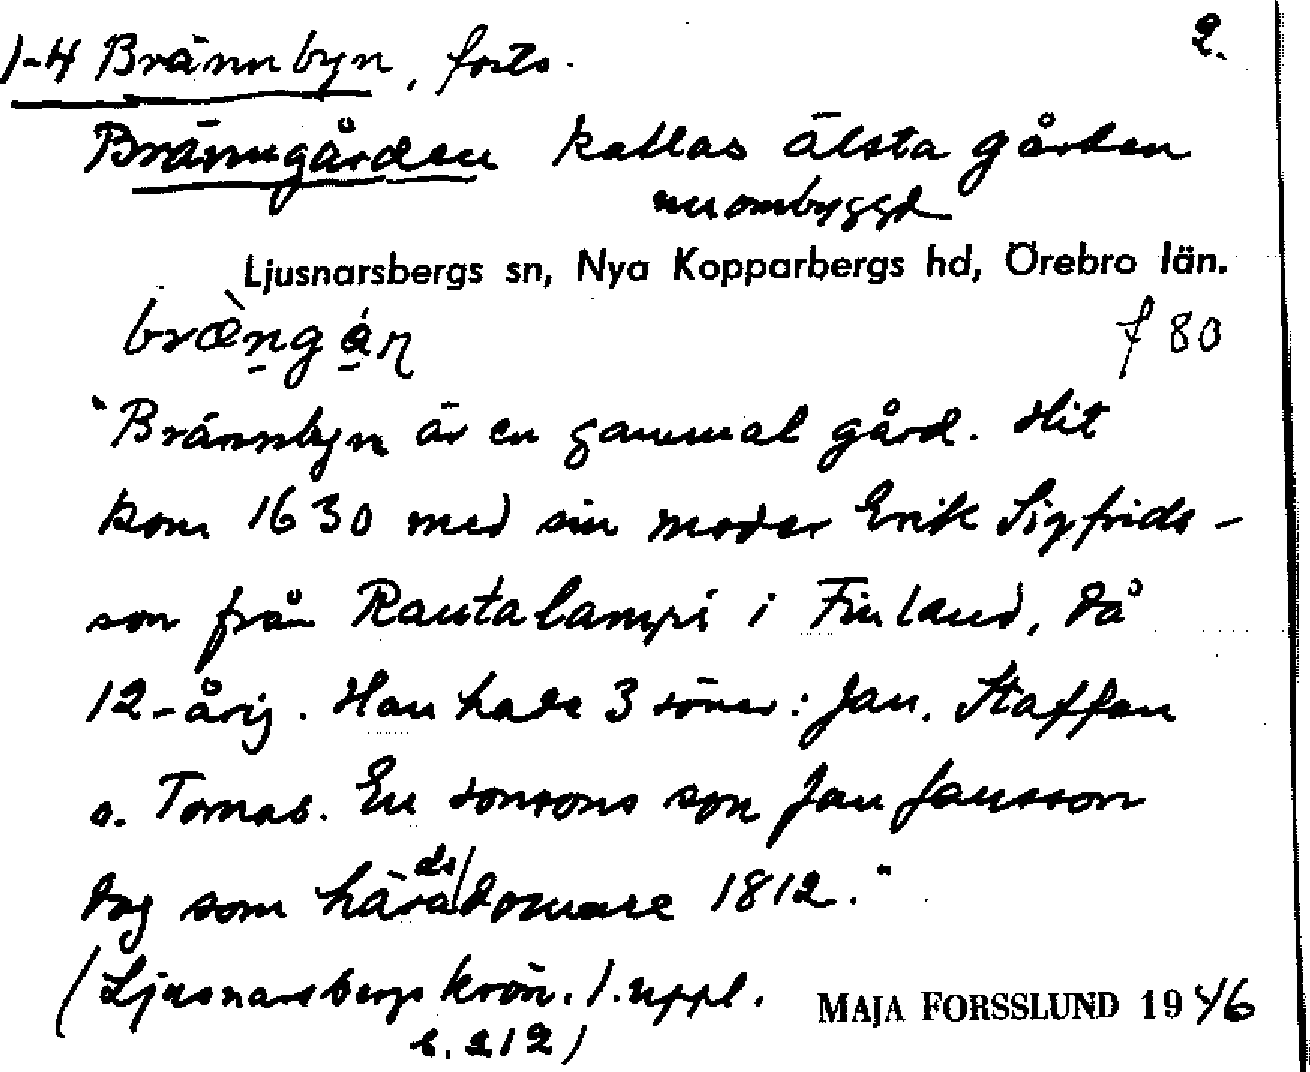 1-4 Brännbyn, forts.
2.
Bränngården kallas älsta gården
nu ombyggd
Ljusnarsbergs sn, Nya Kopparbergs hd, Örebro län.
f 80
"Brännbyn är en gammal gård. Hit
kom 1630 med sin moder Erik Sigfrids-
son från Rautalampi i Finland, då
12-årig. Han hade 3 söner: Jan, Staffan
o. Tomas. En sonsons son Jan Jansson
dog som häradsdomare 1812."
(Ljusnarsbergs krön. 1. uppl.
s. 212)
MAJA FORSSLUND 1946